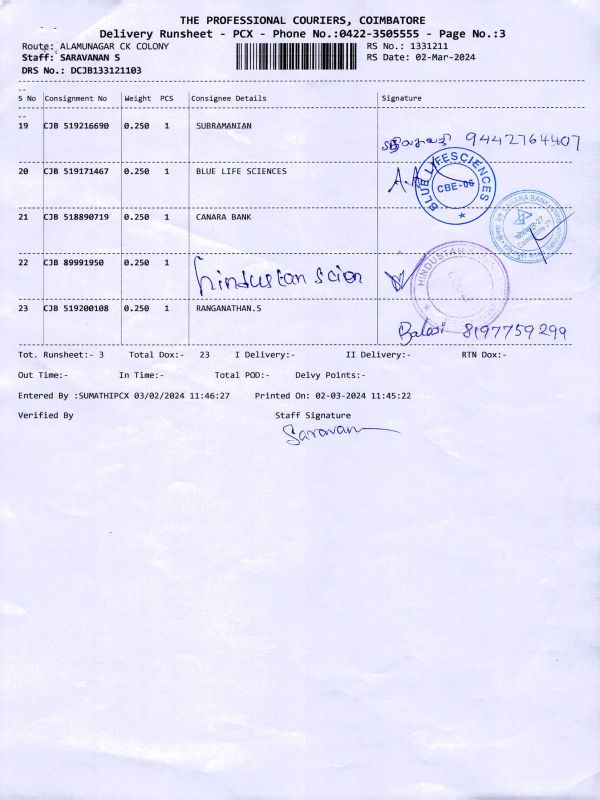 THE PROFESSIONAL COURIERS, COIMBATORE
Delivery Runsheet - PCX - Phone No.:0422-3505555 - Page No.:3
Route: ALAMUNAGAR CK COLONY RS No.: 1331211
Staff: SARAVANAN S RS Date: 02-Mar-2024
DRS No.: DCJB133121103
S No Consignment No Weight PCS Consignee Details Signature
19 CJB 519216690 0.250 1 SUBRAMANIAN
9442764407
20 CJB 519171467 0.250 1 BLUE LIFE SCIENCES
BLUE LIFESCIENCES CBE-06
21 CJB 518890719 0.250 1 CANARA BANK
CANARA BANK
22 CJB 89991950 0.250 1 hindustan scien
HINDUSTAN
23 CJB 519200108 0.250 1 RANGANATHAN.S
Balaji 8197759299
Tot. Runsheet:- 3 Total Dox:- 23 I Delivery:- II Delivery:- RTN Dox:-
Out Time:- In Time:- Total POD:- Delvy Points:-
Entered By :SUMATHIPCX 03/02/2024 11:46:27 Printed On: 02-03-2024 11:45:22
Verified By Staff Signature
Saravan